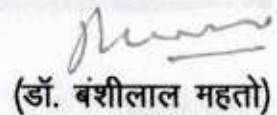 (डॉ. बंशीलाल महतो)